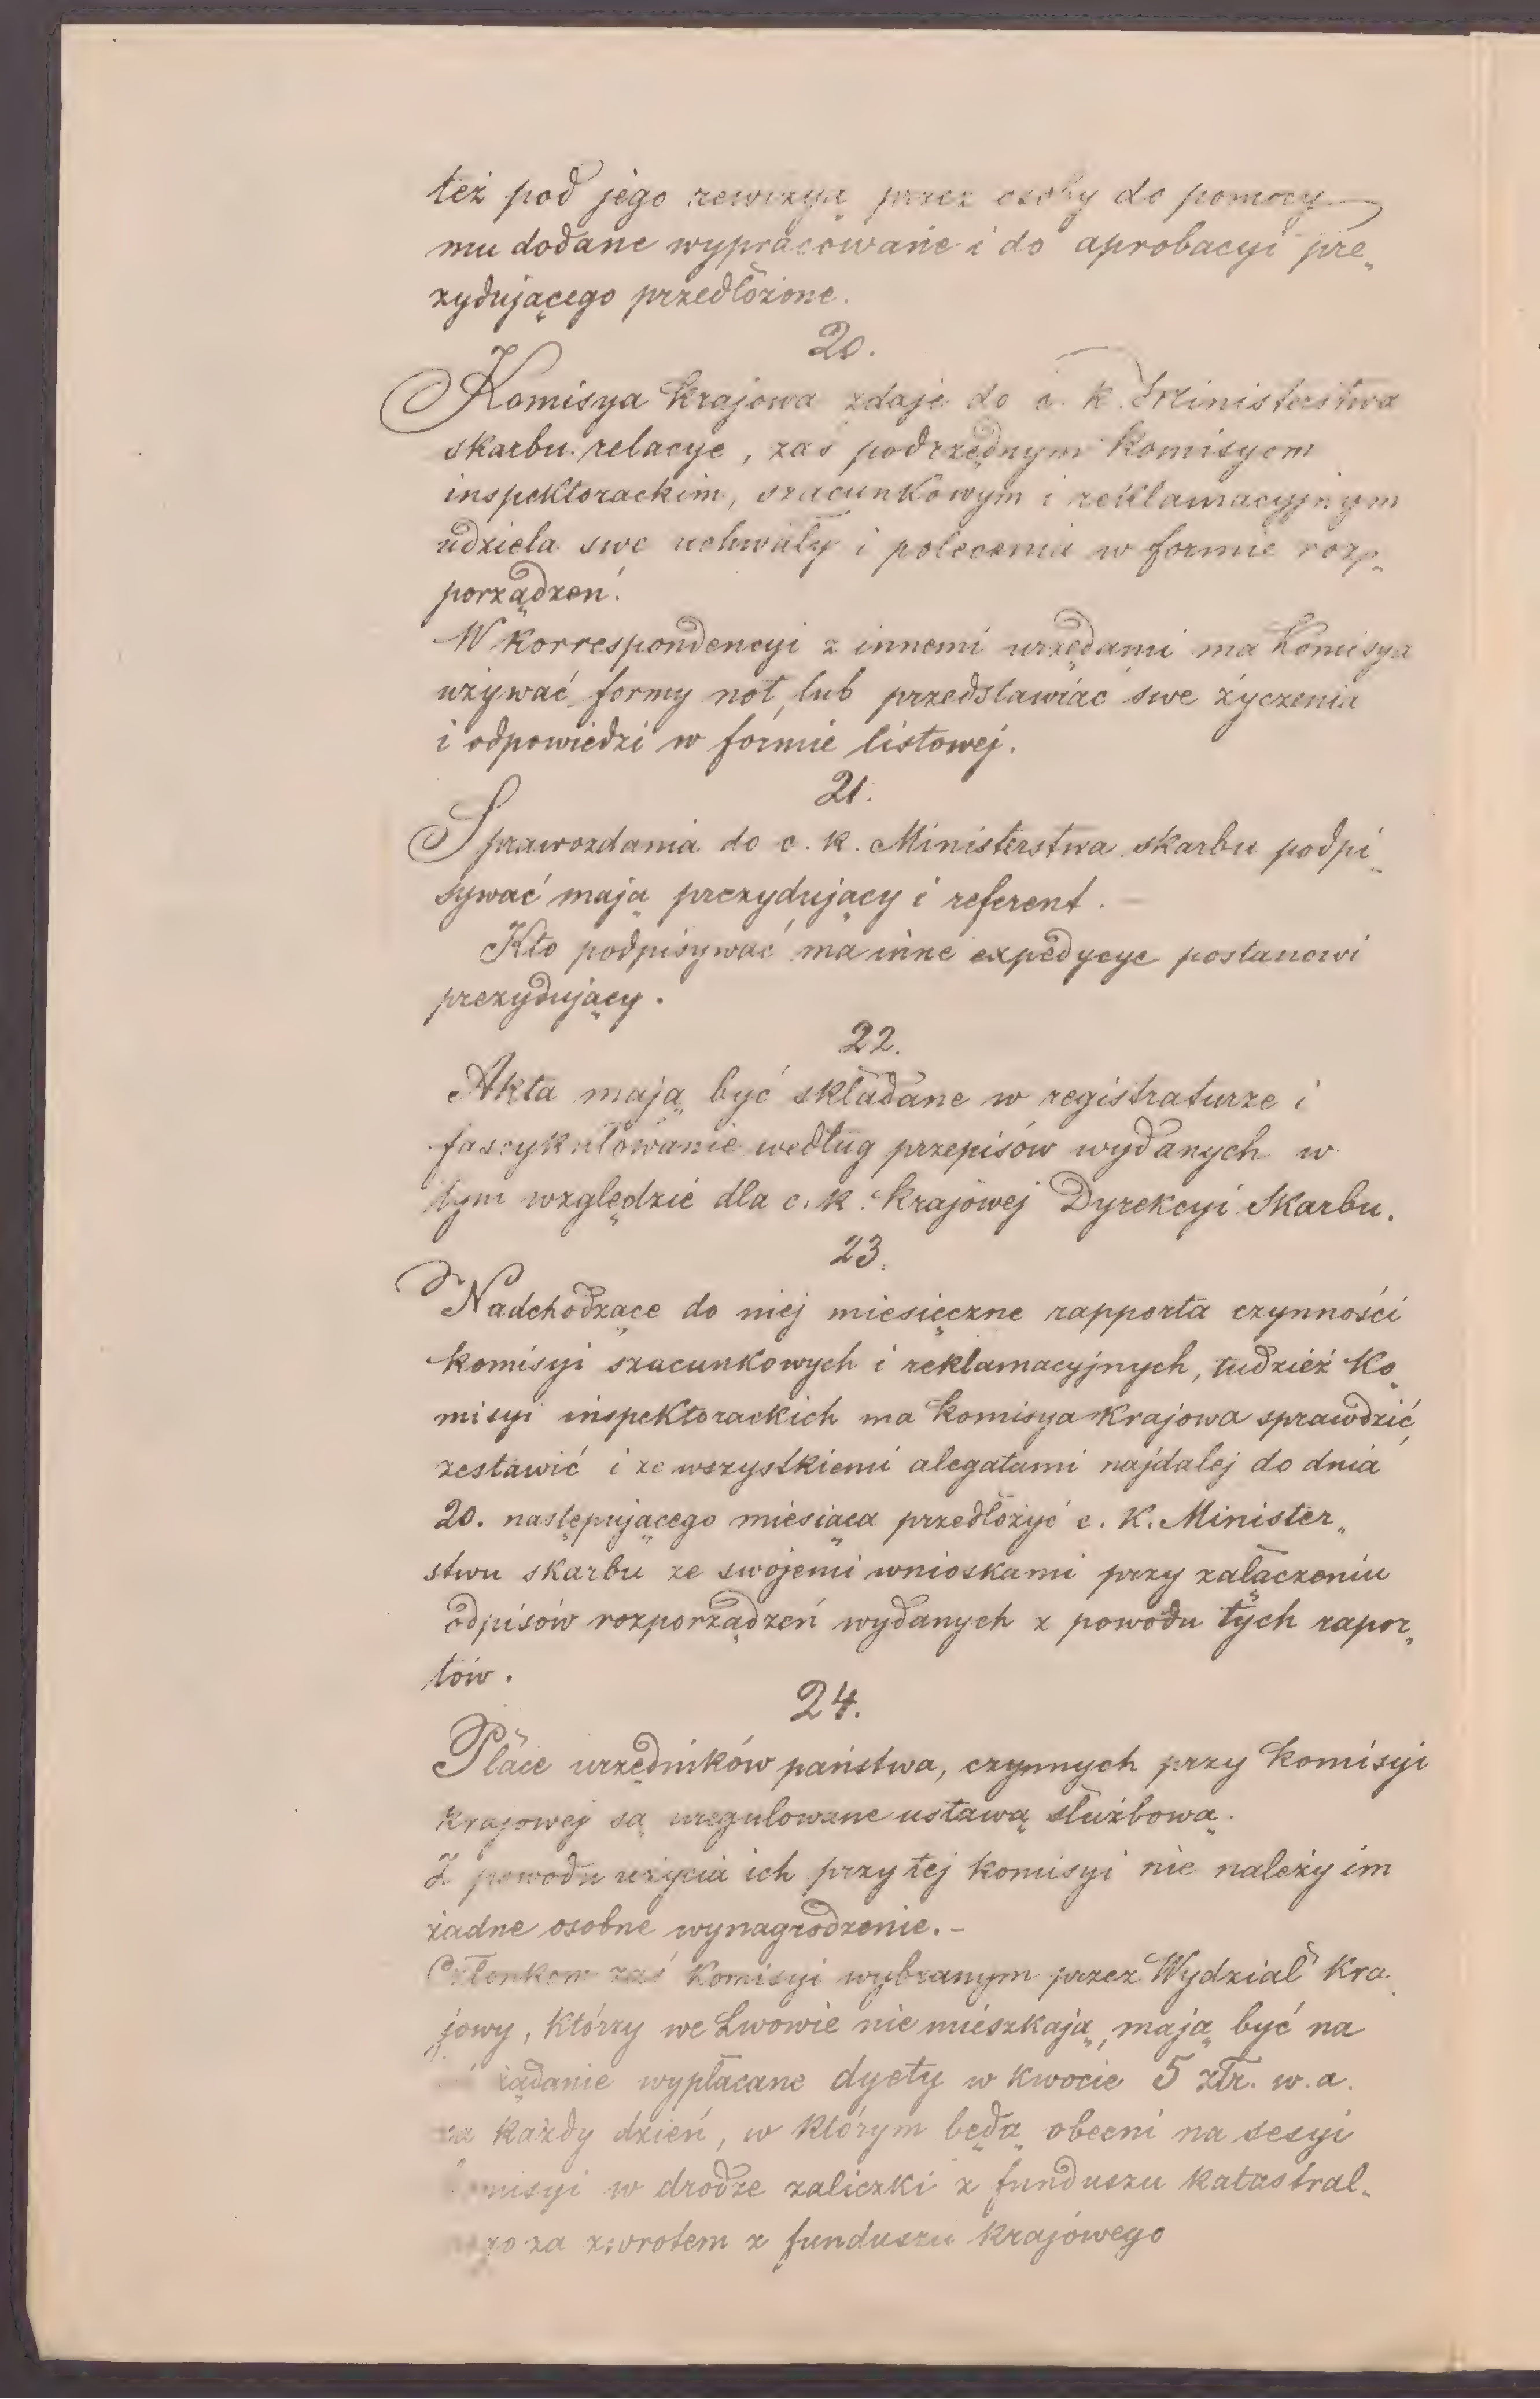 też pod jego rewizyą przez osoby do pomocy
mu dodane wypracowane i do aprobacyi pre„
zydującego przedłożone.
20.
Komisya krajowa zdaje do c. k. Ministerstwa
skarbu relacye, zaś podrzędnym Komisyom
inspektorackim, szacunkowym i reklamacyjnym
udziela swe uchwały i polecenia w formie roz„
porządzeń.
W korrespondencyi z innemi urzędami ma Komisya
używać formy not, lub przedstawiać swe życzenia
i odpowiedzi w formie listowej.
21.
Sprawozdania do c. k. Ministerstwa skarbu podpi„
sywać mają prezydujący i referent.
Kto podpisywać ma inne expedycye postanowi
prezydujący.
22.
Akta mają być składane w registraturze i
fascykułowanie według przepisów wydanych w
tym względzie dla c. k. krajowej Dyrekcyi Skarbu.
23.
Nadchodzące do niej miesięczne rapporta czynności
komisyi szacunkowych i reklamacyjnych, tudzież Ko„
misyi inspektorackich ma komisya krajowa sprawdzić,
zestawić i ze wszystkiemi alegatami najdalej do dnia
20. następującego miesiąca przedłożyć c. k. Minister„
stwu skarbu ze swojemi wnioskami przy załączeniu
odpisów rozporządzeń wydanych z powodu tych rapor„
tów.
24.
Płace urzędników państwa, czynnych przy komisyi
krajowej są uregulowane ustawą służbową.
Z powodu użycia ich przy tej komisyi nie należy im
żadne osobne wynagrodzenie. –
Członkom zaś Komisyi wybranym przez Wydział kra„
jowy, którzy we Lwowie nie mieszkają, mają być na
żądanie wypłacane dyety w kwocie 5 złr. w. a.
za każdy dzień, w którym będą obecni na sesyi
komisyi w drodze zaliczki z funduszu katastral„
za zwrotem z funduszu krajowego